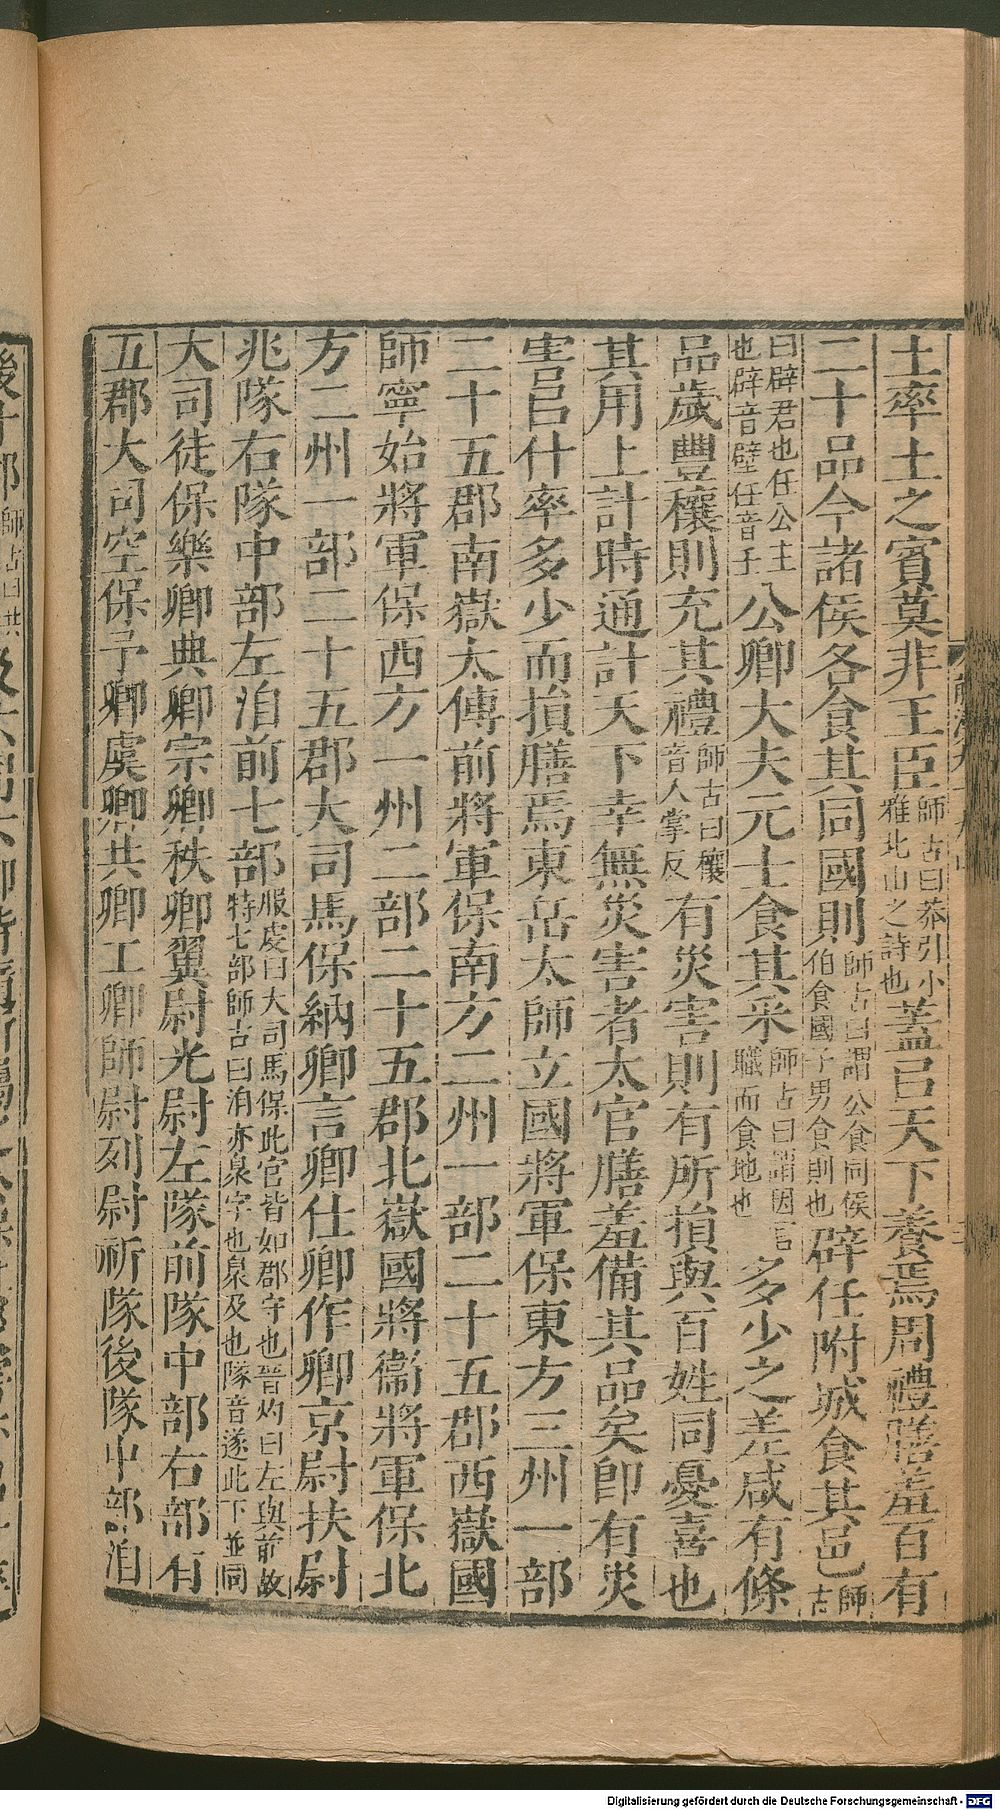 土率土之賓莫非王臣師古曰莽引小雅北山之詩也蓋㠯天下養焉周禮膳羞百有
二十品今諸侯各食其同國則師古曰謂公食同侯伯食國子男食則也辟任附城食其邑師古
曰辟君也任公主也辟音壁任音壬公卿大夫元士食其采師古曰謂因官職而食地也多少之差咸有條
品歲豐穰則充其禮師古曰穰音人掌反有災害則有所損與百姓同憂喜也
其用上計時通計天下幸無災害者太官膳羞備其品矣即有災
害㠯什率多少而損膳焉東岳太師立國將軍保東方三州一部
二十五郡南嶽太傅前將軍保南方二州一部二十五郡西嶽國
師寧始將軍保西方一州二部二十五郡北嶽國將衞將軍保北
方二州一部二十五郡大司馬保納卿言卿仕卿作卿京尉扶尉
兆隊右隊中部左洎前七部服虔曰大司馬保此官皆如郡守也晉灼曰左與前故特七部師古曰洎亦臮字也臮及也隊音遂此下並同
大司徒保樂卿典卿宗卿秩卿翼尉光尉左隊前隊中部右部有
五郡大司空保予卿虞卿共卿工卿師尉列尉祈隊後隊中部洎
Digitalisierung gefördert durch die Deutsche Forschungsgemeinschaft - DFG